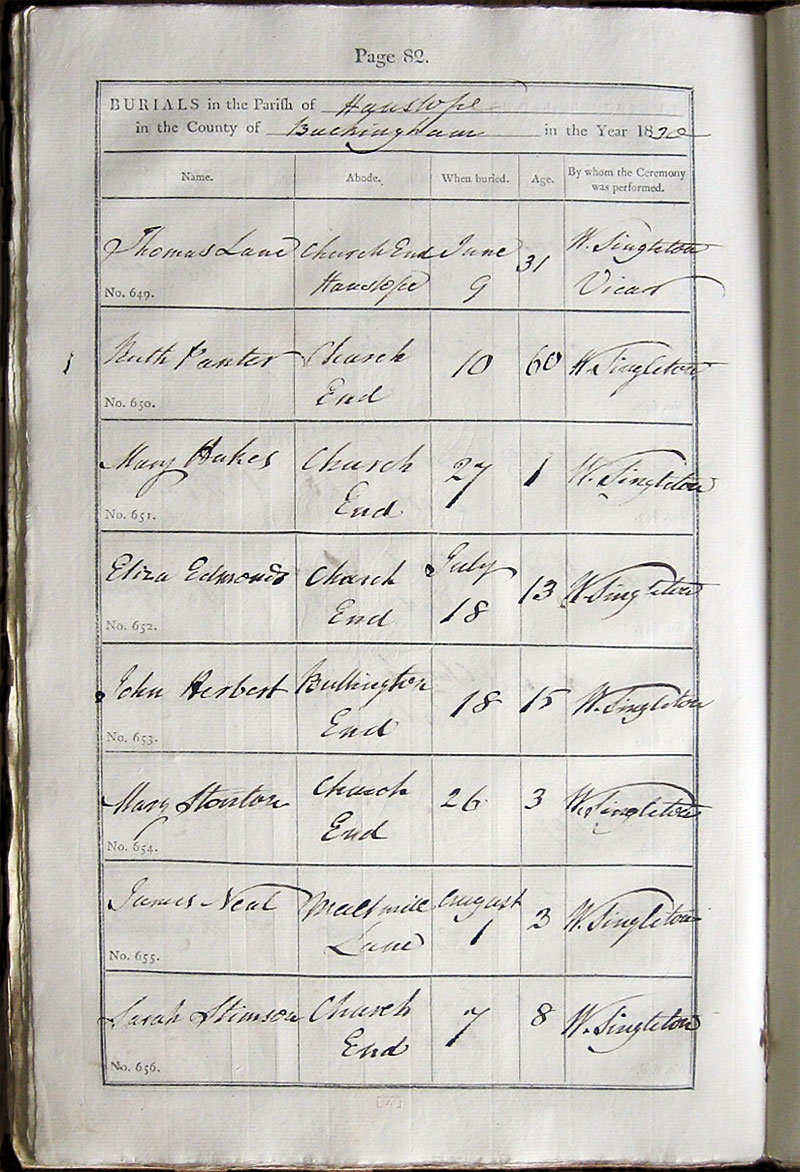 Page 82.
BURIALS in the Parish of Hanslope
in the County of Buckingham in the Year 1820
Name. Abode. When buried. Age. By whom the Ceremony was performed.
Thomas Lane Church End June 31 W. Singleton
No. 649. Hanslope 9 Vicar
Ruth Panter Church 10 60 W. Singleton
No. 650. End
Mary Hakes Church 27 1 W. Singleton
No. 651. End
Eliza Edmonds Church July 13 W. Singleton
No. 652. End 18
John Herbert Bullington 18 15 W. Singleton
No. 653. End
Mary Church 26 3 W. Singleton
No. 654. End
James Neal Maltmill August 3 W. Singleton
No. 655. Lane 1
Sarah Stimson Church 7 8 W. Singleton
No. 656. End